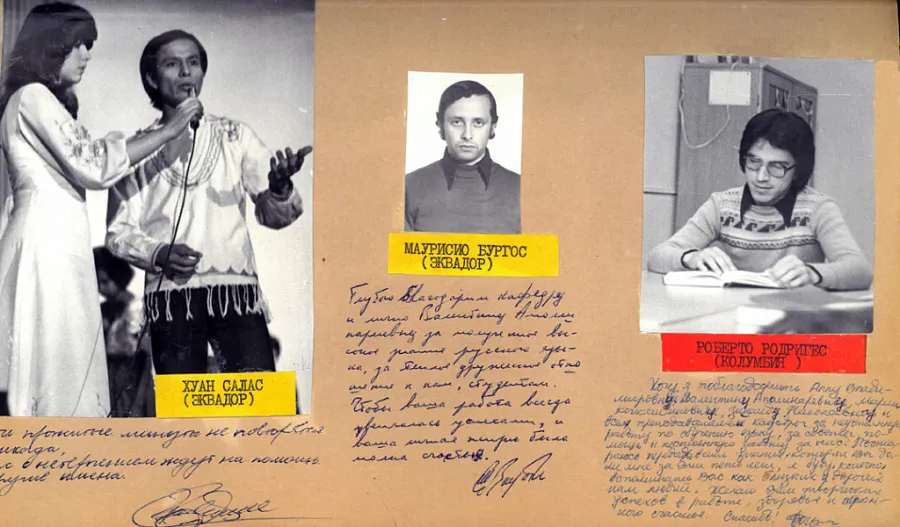 ХУАН САЛАС
(ЭКВАДОР)
прожитые минуты не повторятся
никогда,
с нетерпением ждут на помощь
МАУРИСИО БУРГОС
(ЭКВАДОР)
Глубоко благодарим кафедру
и лично Валентину Аполи
нарьевну за полученные вы-
сокие знания русского язы-
ка, за теплое дружеское отно
шение к нам, студентам.
Чтобы ваша работа всегда
успехами, и
ваша личная жизнь была
полна счастья.
РОБЕРТО РОДРИГЕС
(КОЛУМБИЯ )
Хочу я поблагодарить Анну Влади-
мировну, Валентину Аполинарьевну, Марию
и
всех преподавателей кафедры за
работу по обучению языку, за по-
мощь и работу с нас!
знания, которые Вы да-
ли мне за эти пять лет, я буду, конечно,
вспоминать Вас как о дорогих
нам людей. Желаю Вам творческих
успехов в работе, здоровья и огром-
ного счастья. Спасибо!